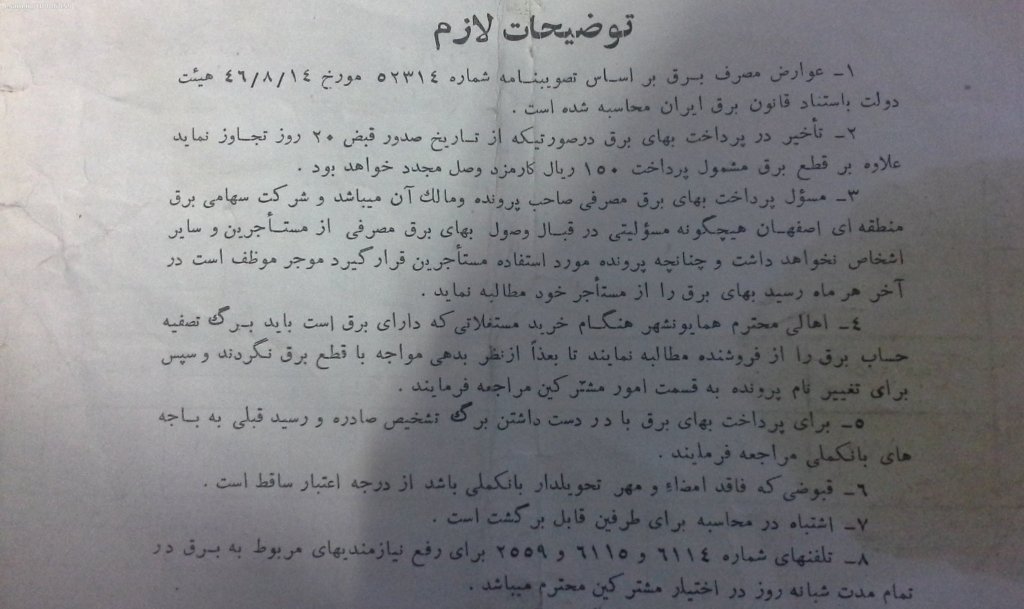 توضیحات لازم
۱ـ عوارض مصرف برق بر اساس تصویبنامه شماره ۵۲۳۱۴ مورخ ۴٦/۸/۱۴ هیئت
دولت باستناد قانون برق ایران محاسبه شده است .
۲ـ تأخیر در پرداخت بهای برق درصورتیکه از تاریخ صدور قبض ۲۰ روز تجاوز نماید
علاوه بر قطع برق مشمول پرداخت ۱۵۰ ریال کارمزد وصل مجدد خواهد بود .
۳ـ مسؤل پرداخت بهای برق مصرفی صاحب پرونده ومالك آن میباشد و شرکت سهامی برق
منطقه ای اصفهان هیچگونه مسؤلیتی در قبال وصول بهای برق مصرفی از مستأجرین و سایر
اشخاص نخواهد داشت و چنانچه پرونده مورد استفاده مستأجرین قرارگیرد موجر موظف است در
آخر هر ماه رسید بهای برق را از مستأجر خود مطالبه نماید .
٤ـ اهالی محترم همایونشهر هنگام خرید مستغلاتی که دارای برق است باید برگ تصفیه
حساب برق را از فروشنده مطالبه نمایند تا بعداً ازنظر بدهی مواجه با قطع برق نگردند و سپس
برای تغییر نام پرونده به قسمت امور مشترکین مراجعه فرمایند .
۵ـ برای پرداخت بهای برق با در دست داشتن برگ تشخیص صادره و رسید قبلی به باجه
های بانکملی مراجعه فرمایند .
٦ـ قبوضی که فاقد امضاء و مهر تحویلدار بانکملی باشد از درجه اعتبار ساقط است .
۷ـ اشتباه در محاسبه برای طرفین قابل برگشت است .
۸ـ تلفنهای شماره ٦۱۱٤ و ٦۱۱۵ و ۲۵۵۹ برای رفع نیازمندیهای مربوط به برق در
تمام مدت شبانه روز در اختیار مشترکین محترم میباشد .